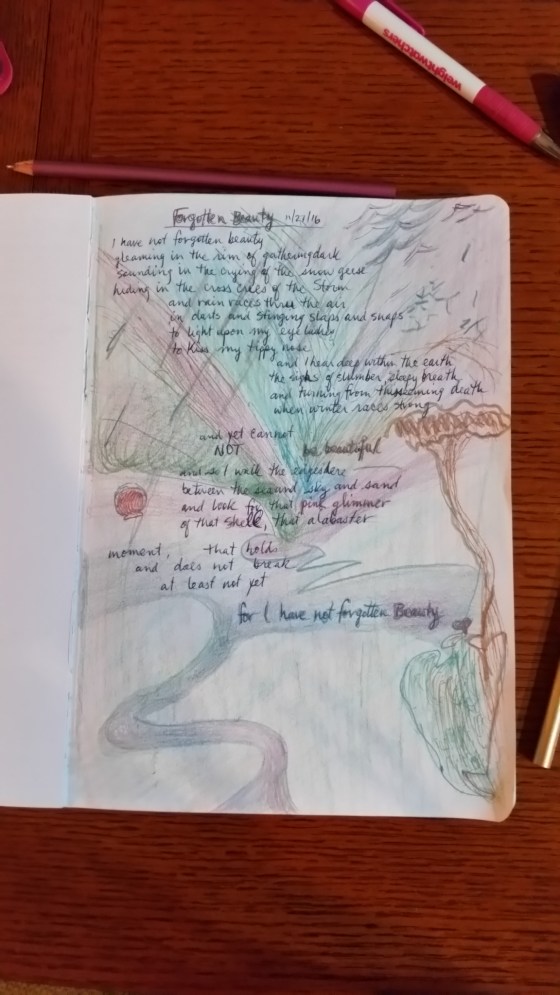 weightwatchers
Forgotten Beauty 11/21/16
I have not forgotten beauty
gleaming in the rim of gatheringdark
sounding in the crying of the snow geese
hiding in the cross cries of the Storm
and rain races thru the air
in darts and stinging slaps and snaps
to light upon my eyelashes
to kiss my tippy nose
and I hear deep within the earth
the sighs of slumber, sleepy breath,
and turning from this coming death
when winter races strong
and yet cannot
NOT be beautiful
and so I walk the edges
between the sea and sky and sand
and look for that pink glimmer
of that shell, that alabaster
moment, that holds
and does not break
at least not yet
for I have not forgotten Beauty